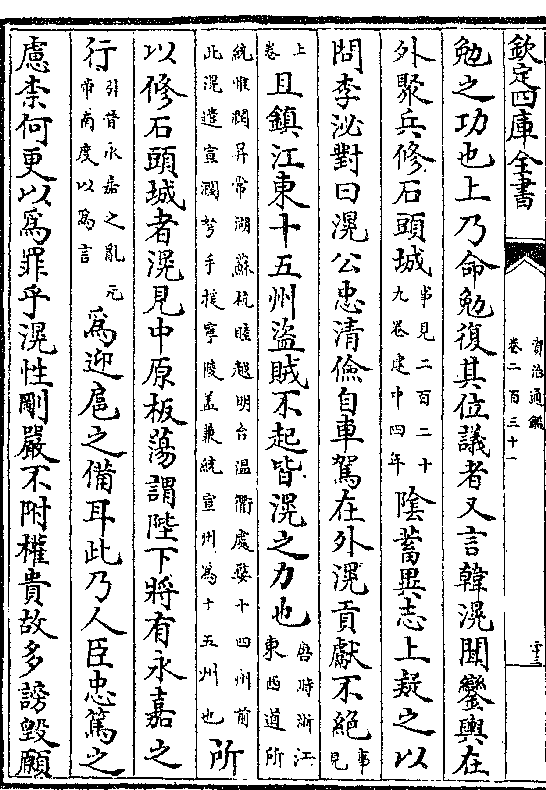 欽定四庫全書
資治通鑑
卷二百三十一
二十三
勉之功也上乃命勉復其位議者又言韓滉聞鑾輿在
外聚兵修石頭城事見二百二十九卷建中四年陰蓄異志上疑之以
問李泌對曰滉公忠清儉自車駕在外滉貢獻不絶事見
上卷且鎮江東十五州盜賊不起皆滉之力也唐時浙江東西道所
統惟潤昇常湖蘇杭睦越明台溫衢處婺十四州前此滉遣宣潤弩手援寧陵蓋兼統宣州為十五州也所
以修石頭城者滉見中原板蕩謂陛下將有永嘉之
行引晉永嘉之亂元帝南度以為言為迎扈之備耳此乃人臣忠篤之
慮柰何更以為罪乎滉性剛嚴不附權貴故多謗毀願